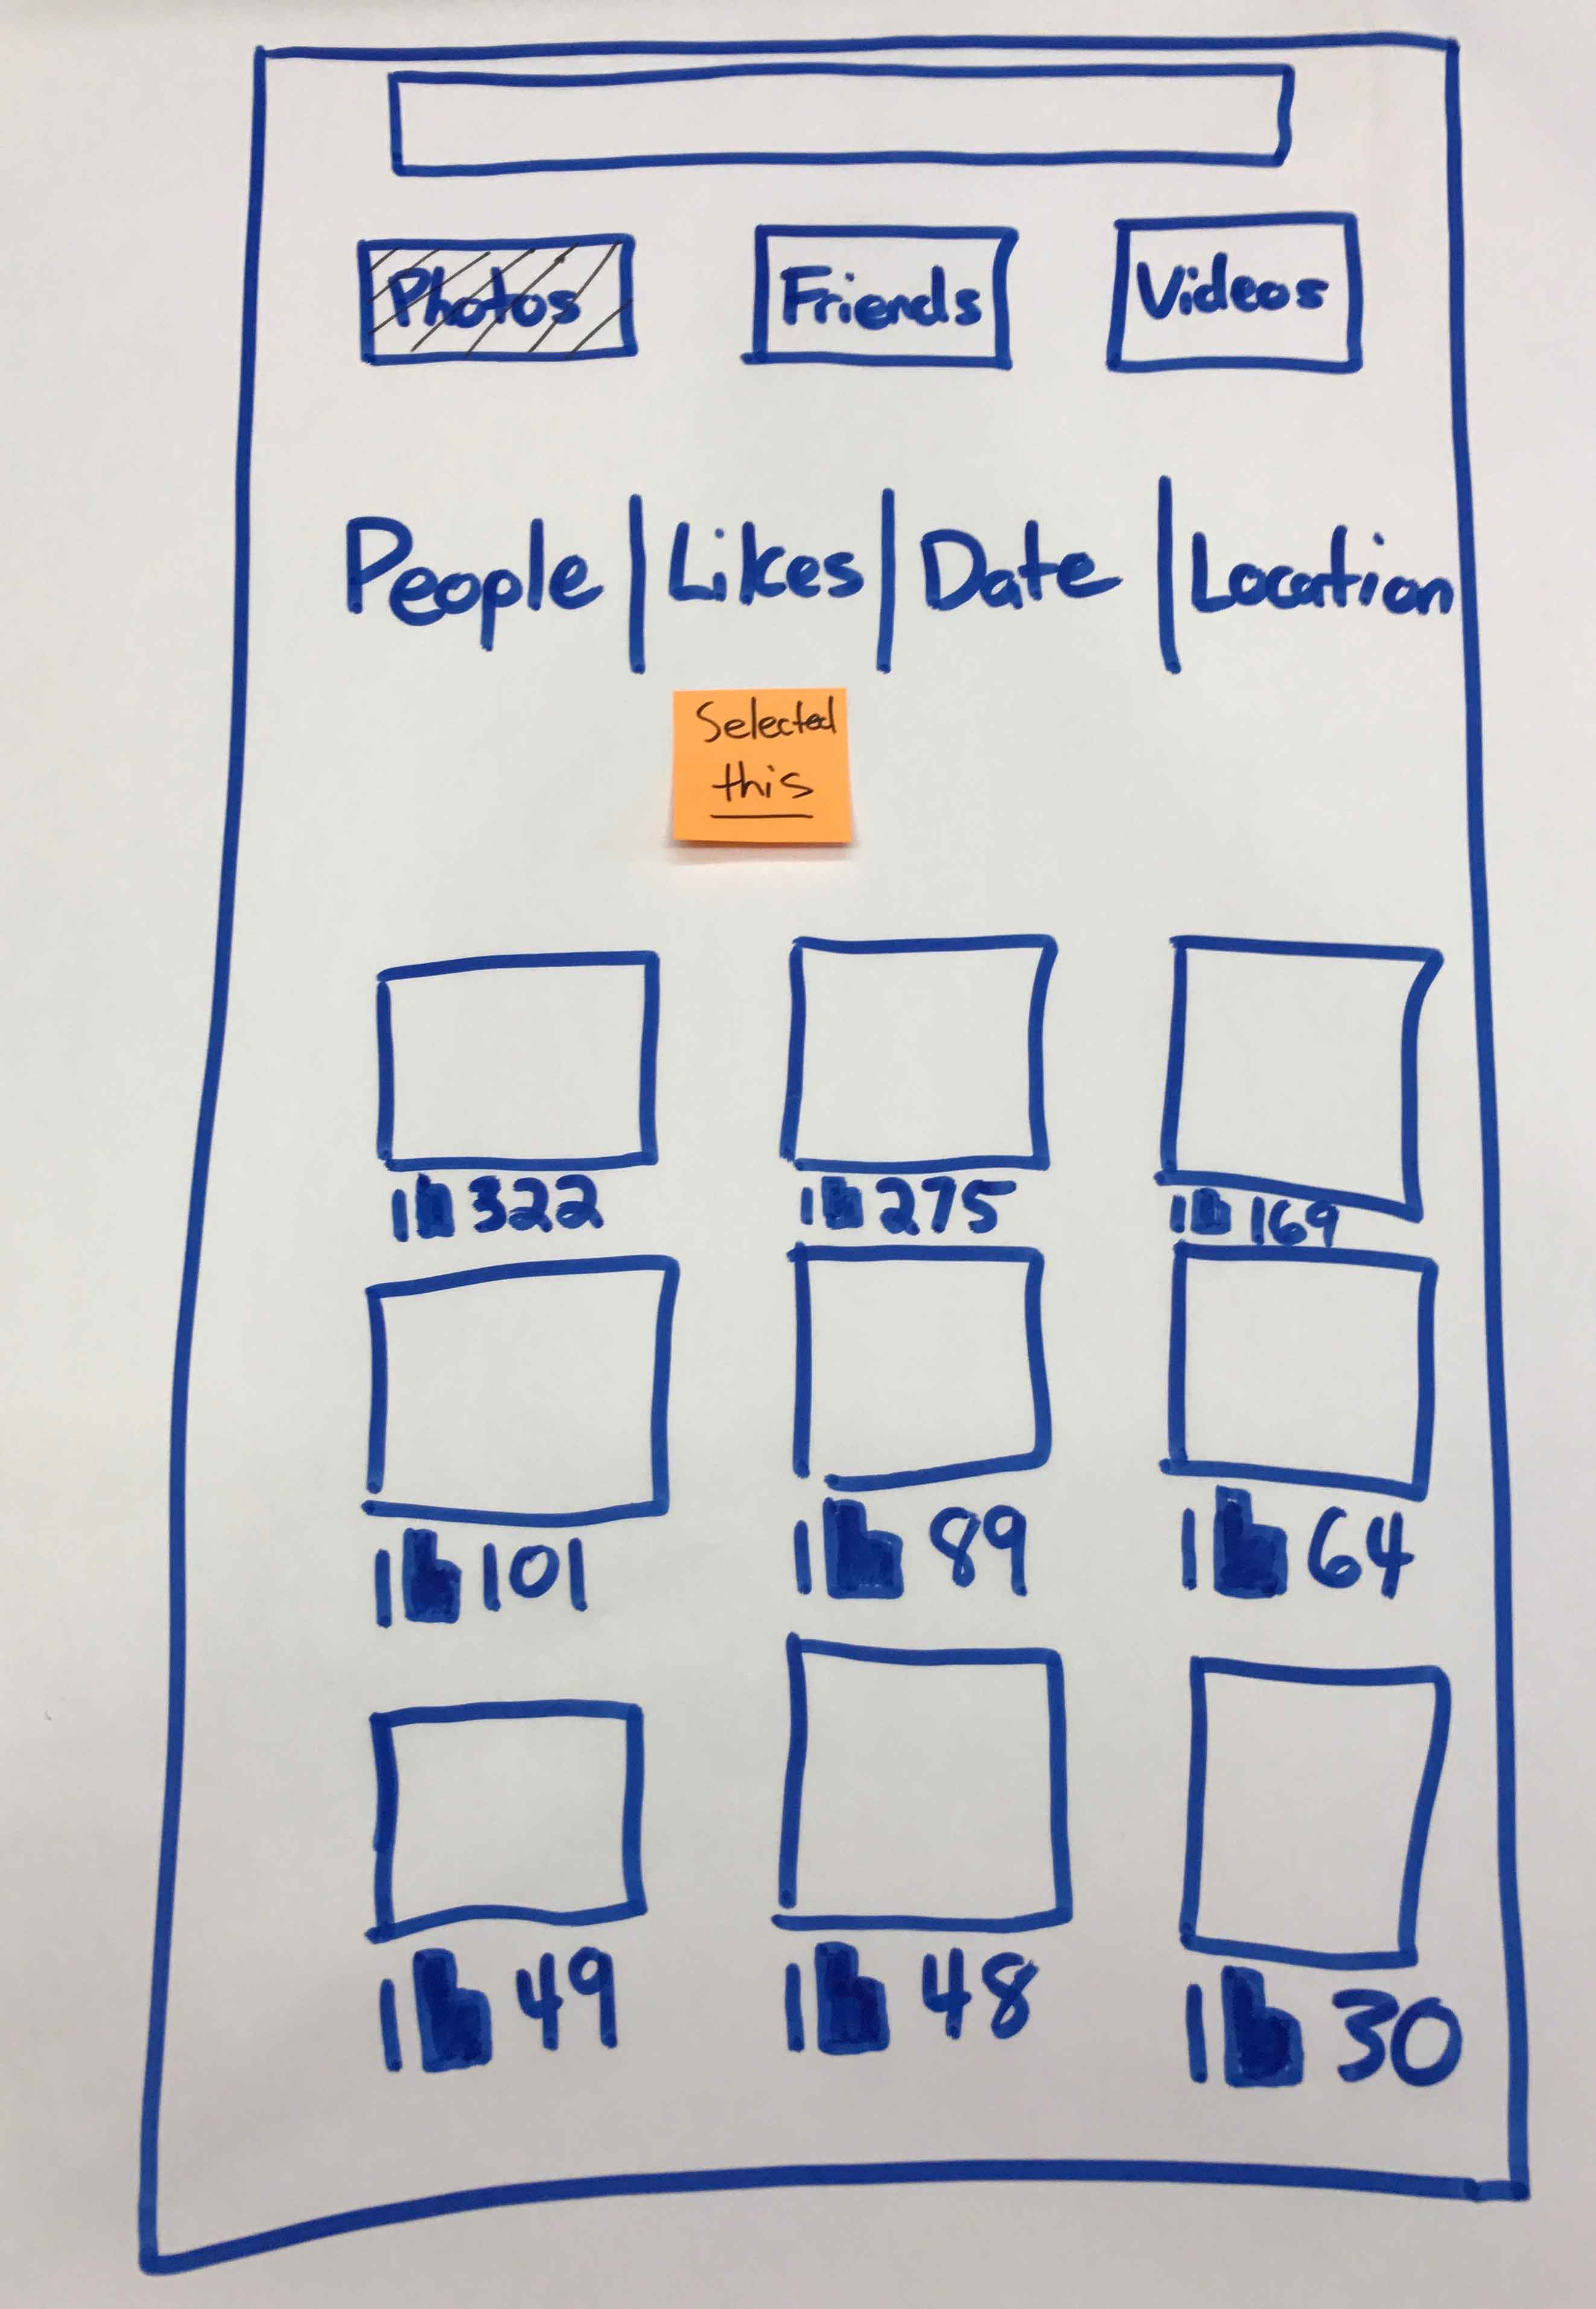 Photos Friends Videos
People | Likes | Date | Location
Selected
this
322 275 169
101 89 64
49 48 30